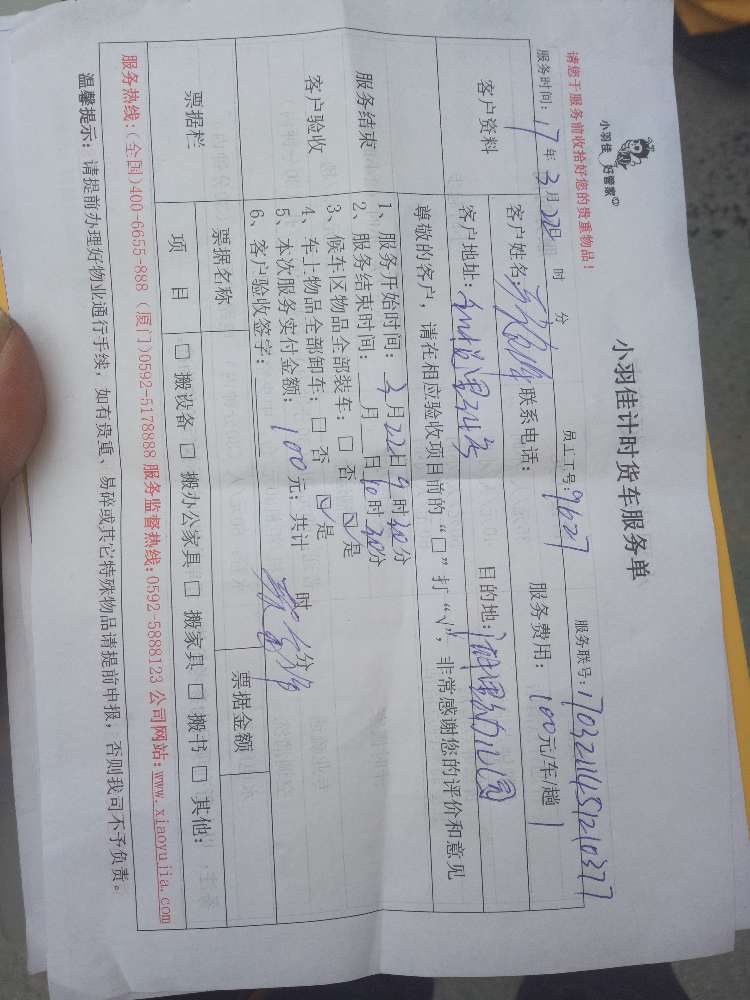 小羽佳 好管家
小羽佳计时货车服务单
请您于服务前收拾好您的贵重物品！
员工工号：9627
服务联号：1703211451210377
服务时间：17年3月22日 时 分
客户资料
客户姓名： 联系电话： 服务费用：100元/车/趟 1
客户地址： 目的地：
尊敬的客户，请在相应验收项目前的“□”打“√”，非常感谢您的评价和意见
服务结束
客户验收
1、服务开始时间：3月22日9时30分
2、服务结束时间： 月 日10时30分
3、候车区物品全部装车：□ 否 ☑ 是
4、车上物品全部卸车：□ 否 ☑ 是
5、本次服务实付金额：100元；共计 时 分
6、客户验收签字：
票据栏
票据名称 票据金额
项 目 □ 搬设备 □ 搬办公家具 □ 搬家具 □ 搬书 □ 其他：
服务热线：(全国)400-6655-888 (厦门)0592-5178888 服务监督热线：0592-5888123 公司网站：www.xiaoyujia.com
温馨提示：请提前办理好物业通行手续，如有贵重、易碎或其它特殊物品请提前申报，否则我司不予负责。